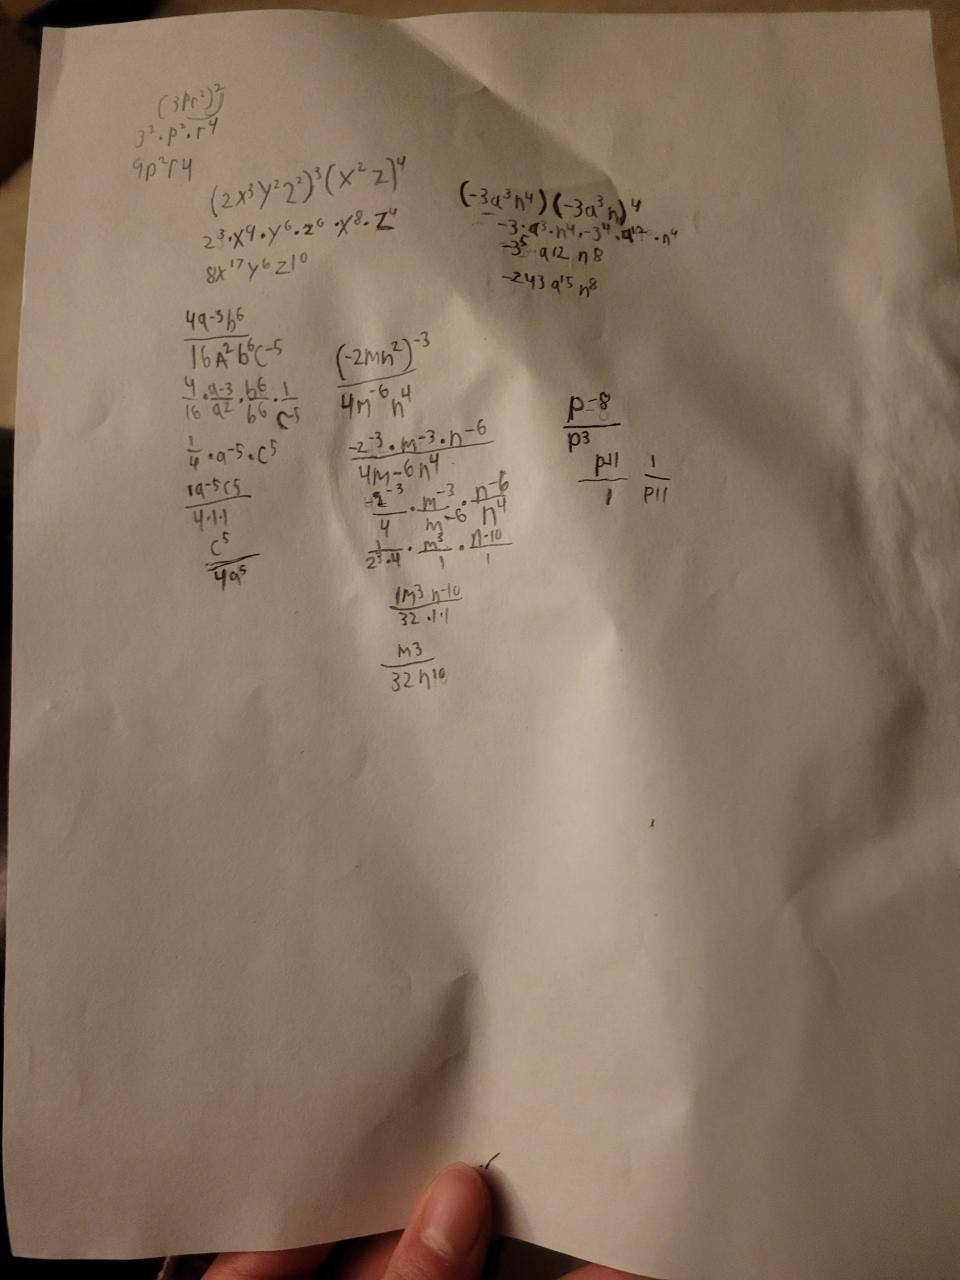 (3pr²)²
3²·p²·r⁴
9p²r4
(2x³y²z²)³(x²z)⁴
2³·x⁹·y⁶·z⁶·x⁸·z⁴
8x¹⁷y⁶z1⁰
(-3a³n⁴)(-3a³n)⁴
-3·a³·n⁴·-3⁴·a¹²·n⁴
-3⁵ a12 n8
-243a¹⁵n⁸
4a-³b⁶
16A²b⁶c-⁵
4/16·a-3/a2·b6/b6·1/c-5
1/4·a-⁵·c⁵
1a-5c5
4·1·1
c⁵
4a⁵
(-2mn²)⁻³
4m⁻⁶n⁴
-2⁻³·m⁻³·n⁻⁶
4m-6n⁴
-2⁻³/4·m⁻³/m⁻⁶·n⁻⁶/n⁴
1/2³·4·m³/1·n-10/1
1m³n-10
32·1·1
m3
32n¹⁰
p-8
p3
p-11 1
1 p11